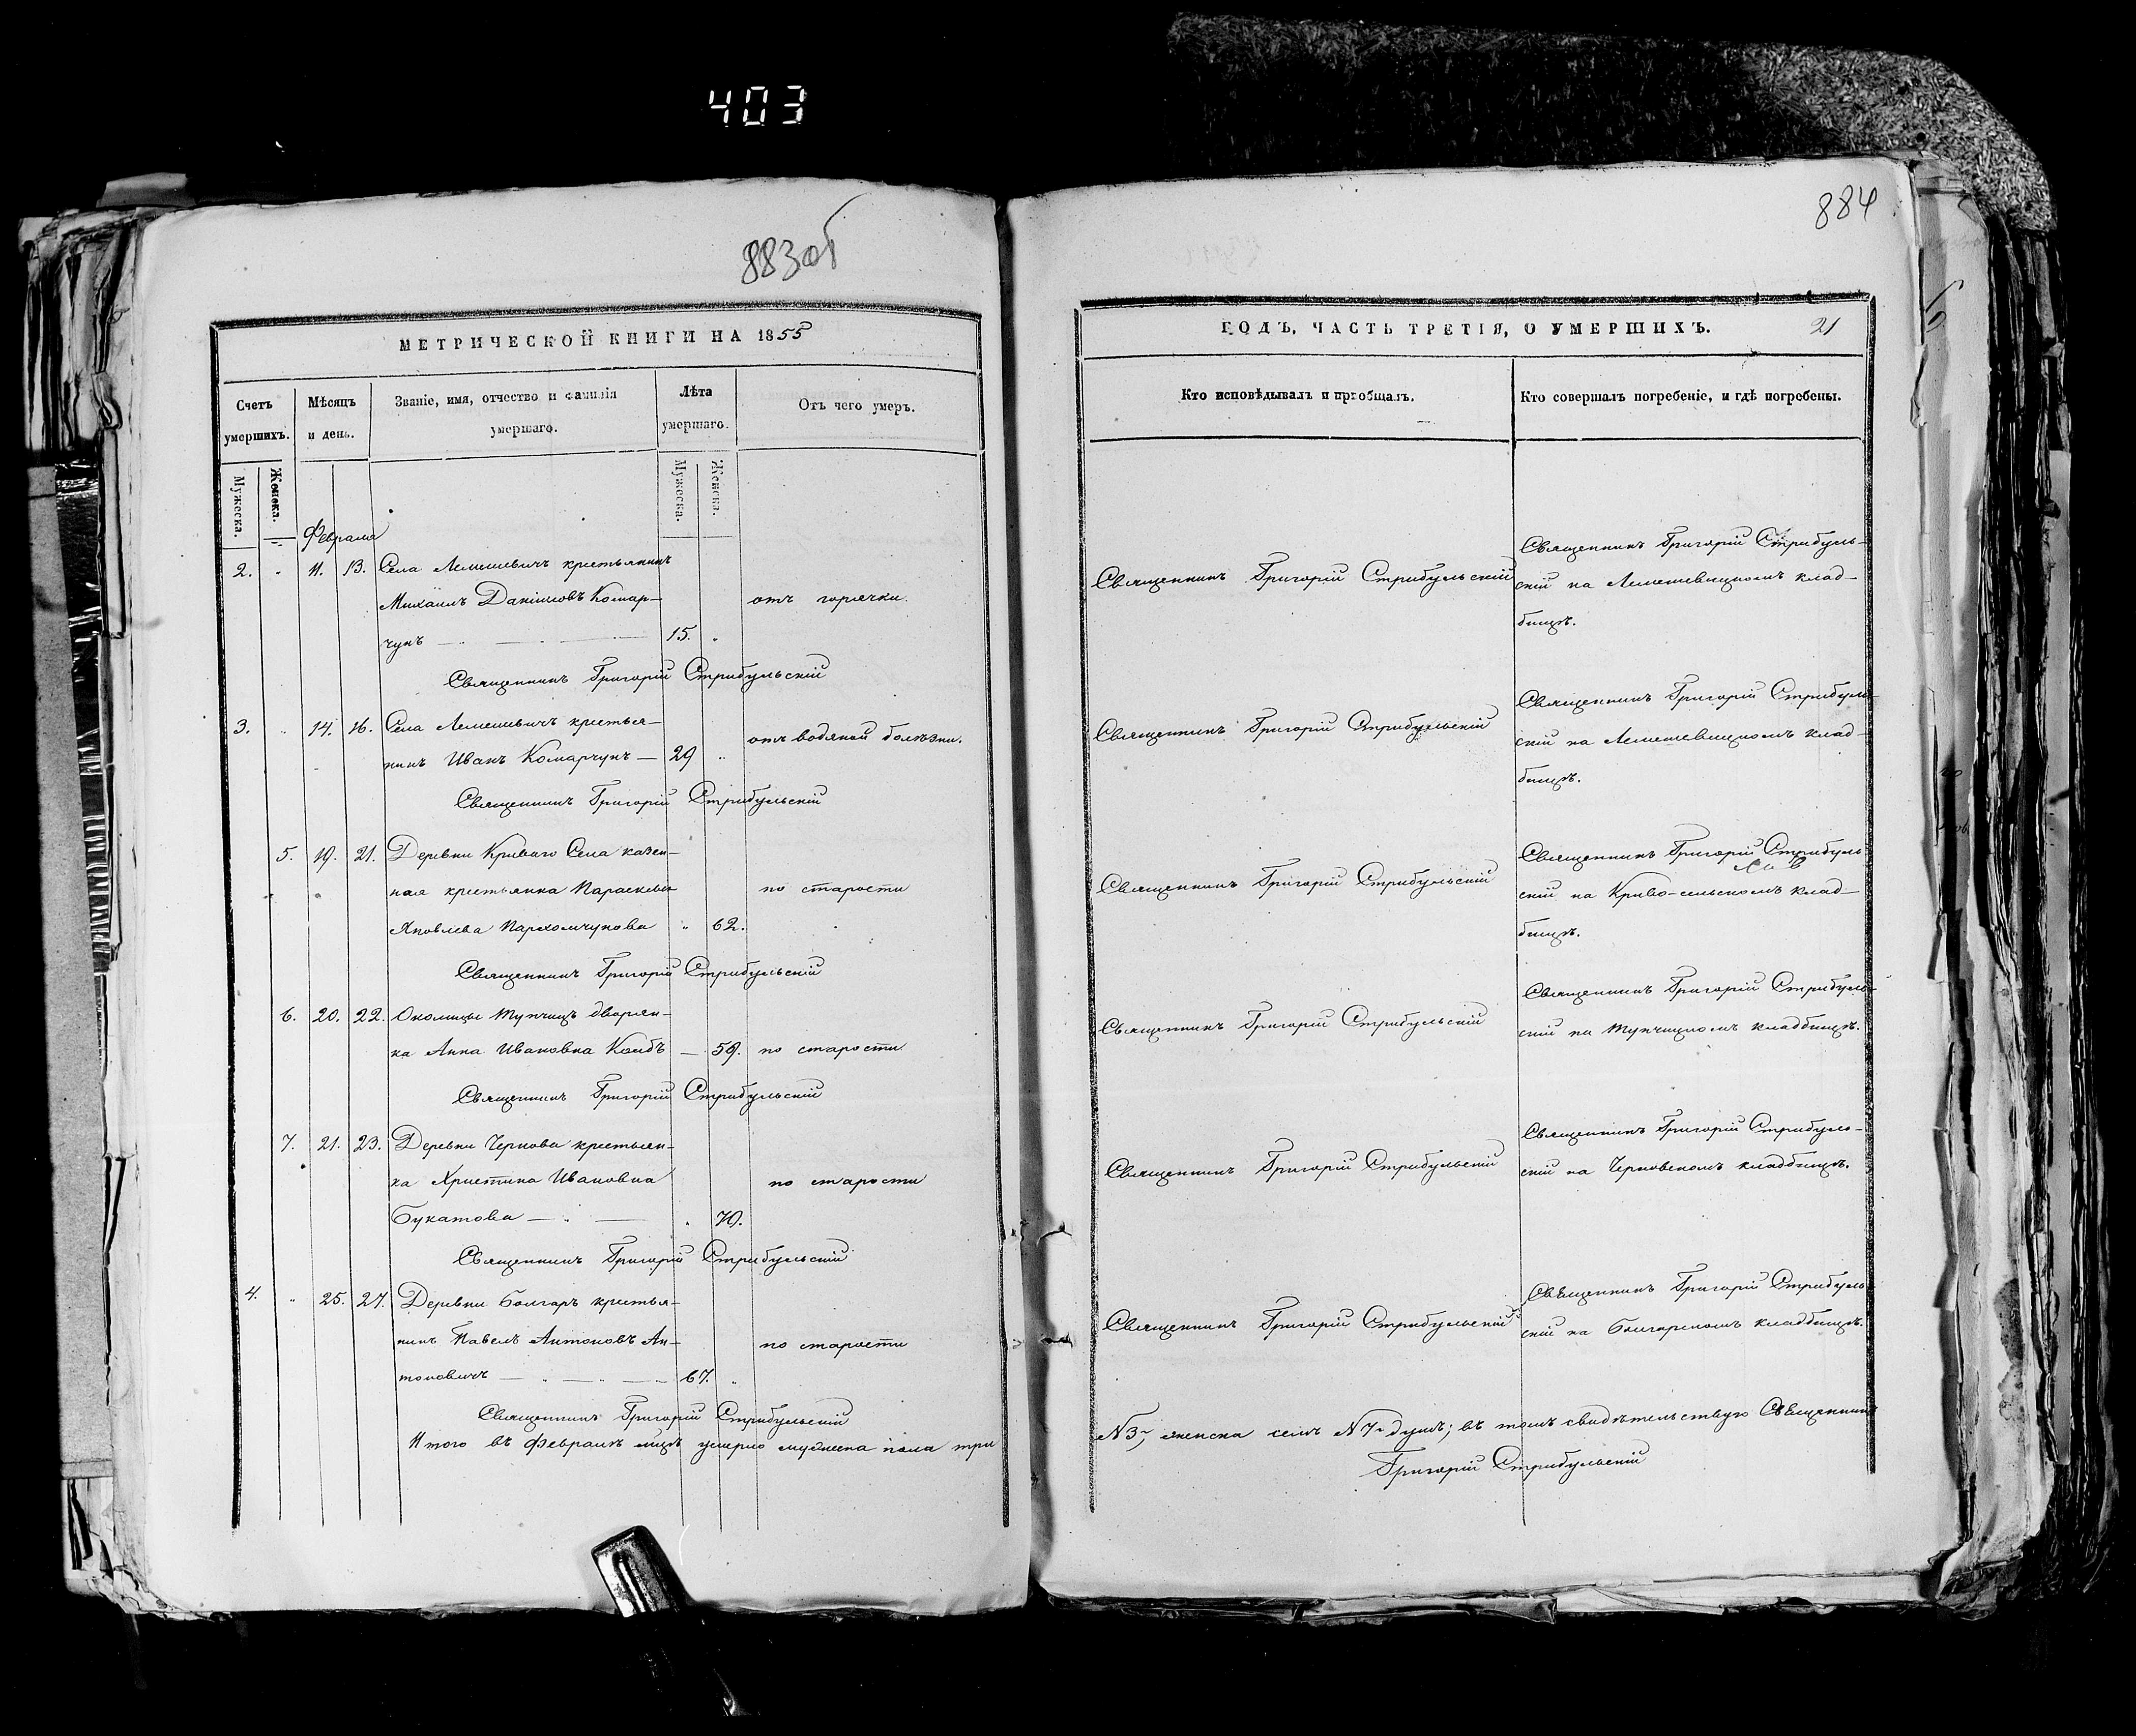 403
883об
МЕТРИЧЕСКОЙ КНИГИ НА 1855
Счетъ умершихъ.
Мѣсяцъ и день.
Званіе, имя, отчество и фамилія умершаго.
Лѣта умершаго.
Отъ чего умеръ.
Мужеска.
Женска.
Мужеска.
Женска.
Февраля
2. 11. 13. Села Лемешевичъ крестьянинъ
Михаилъ Даніиловъ Комар-
отъ горячки.
чукъ 15.
Священникъ Григорій Стрибульскій
3. 14. 16. Села Лемешевичъ крестья-
нинъ Иванъ Комарчукъ 29
отъ водяной болѣзни.
Священникъ Григорій Стрибульскій
5. 19. 21. Деревни Криваго Села казен-
ная крестьянка Параскева
по старости
Яковлева Пархомчукова 62.
Священникъ Григорій Стрибульскій
6. 20. 22. Околицы Тупчицъ дворян-
ка Анна Ивановна Колбъ 59. по старости
Священникъ Григорій Стрибульскій
7. 21. 23. Деревни Чернова крестьян-
ка Христина Ивановна
по старости
Букатова 70.
Священникъ Григорій Стрибульскій
4. 25. 27. Деревни Болгаръ крестья-
нинъ Павелъ Антоновъ Ан-
по старости
тоновичъ 67.
Священникъ Григорій Стрибульскій
Итого въ Февралѣ мцѣ умерло мужеска пола три
884
ГОДЪ, ЧАСТЬ ТРЕТІЯ, О УМЕРШИХЪ.
21
Кто исповѣдывалъ и пріобщалъ.
Кто совершалъ погребеніе, и гдѣ погребены.
Священникъ Григорій Стрибульскій
Священникъ Григорій Стрибуль-
скій на Лемешевицкомъ клад-
бищѣ.
Священникъ Григорій Стрибульскій
Священникъ Григорій Стрибуль-
скій на Лемешевицкомъ клад-
бищѣ.
Священникъ Григорій Стрибульскій
Священникъ Григорій Стрибуль-
скій на Криво-сельскомъ клад-
бищѣ.
Священникъ Григорій Стрибульскій
Священникъ Григорій Стрибуль-
скій на Тупчицкомъ кладбищѣ.
Священникъ Григорій Стрибульскій
Священникъ Григорій Стрибуль-
скій на Черновскомъ кладбищѣ.
Священникъ Григорій Стрибульскій
Священникъ Григорій Стрибуль-
скій на Болгарскомъ кладбищѣ.
N3, женска семь N7 душъ; въ томъ свидѣтельствую Священникъ
Григорій Стрибульскій